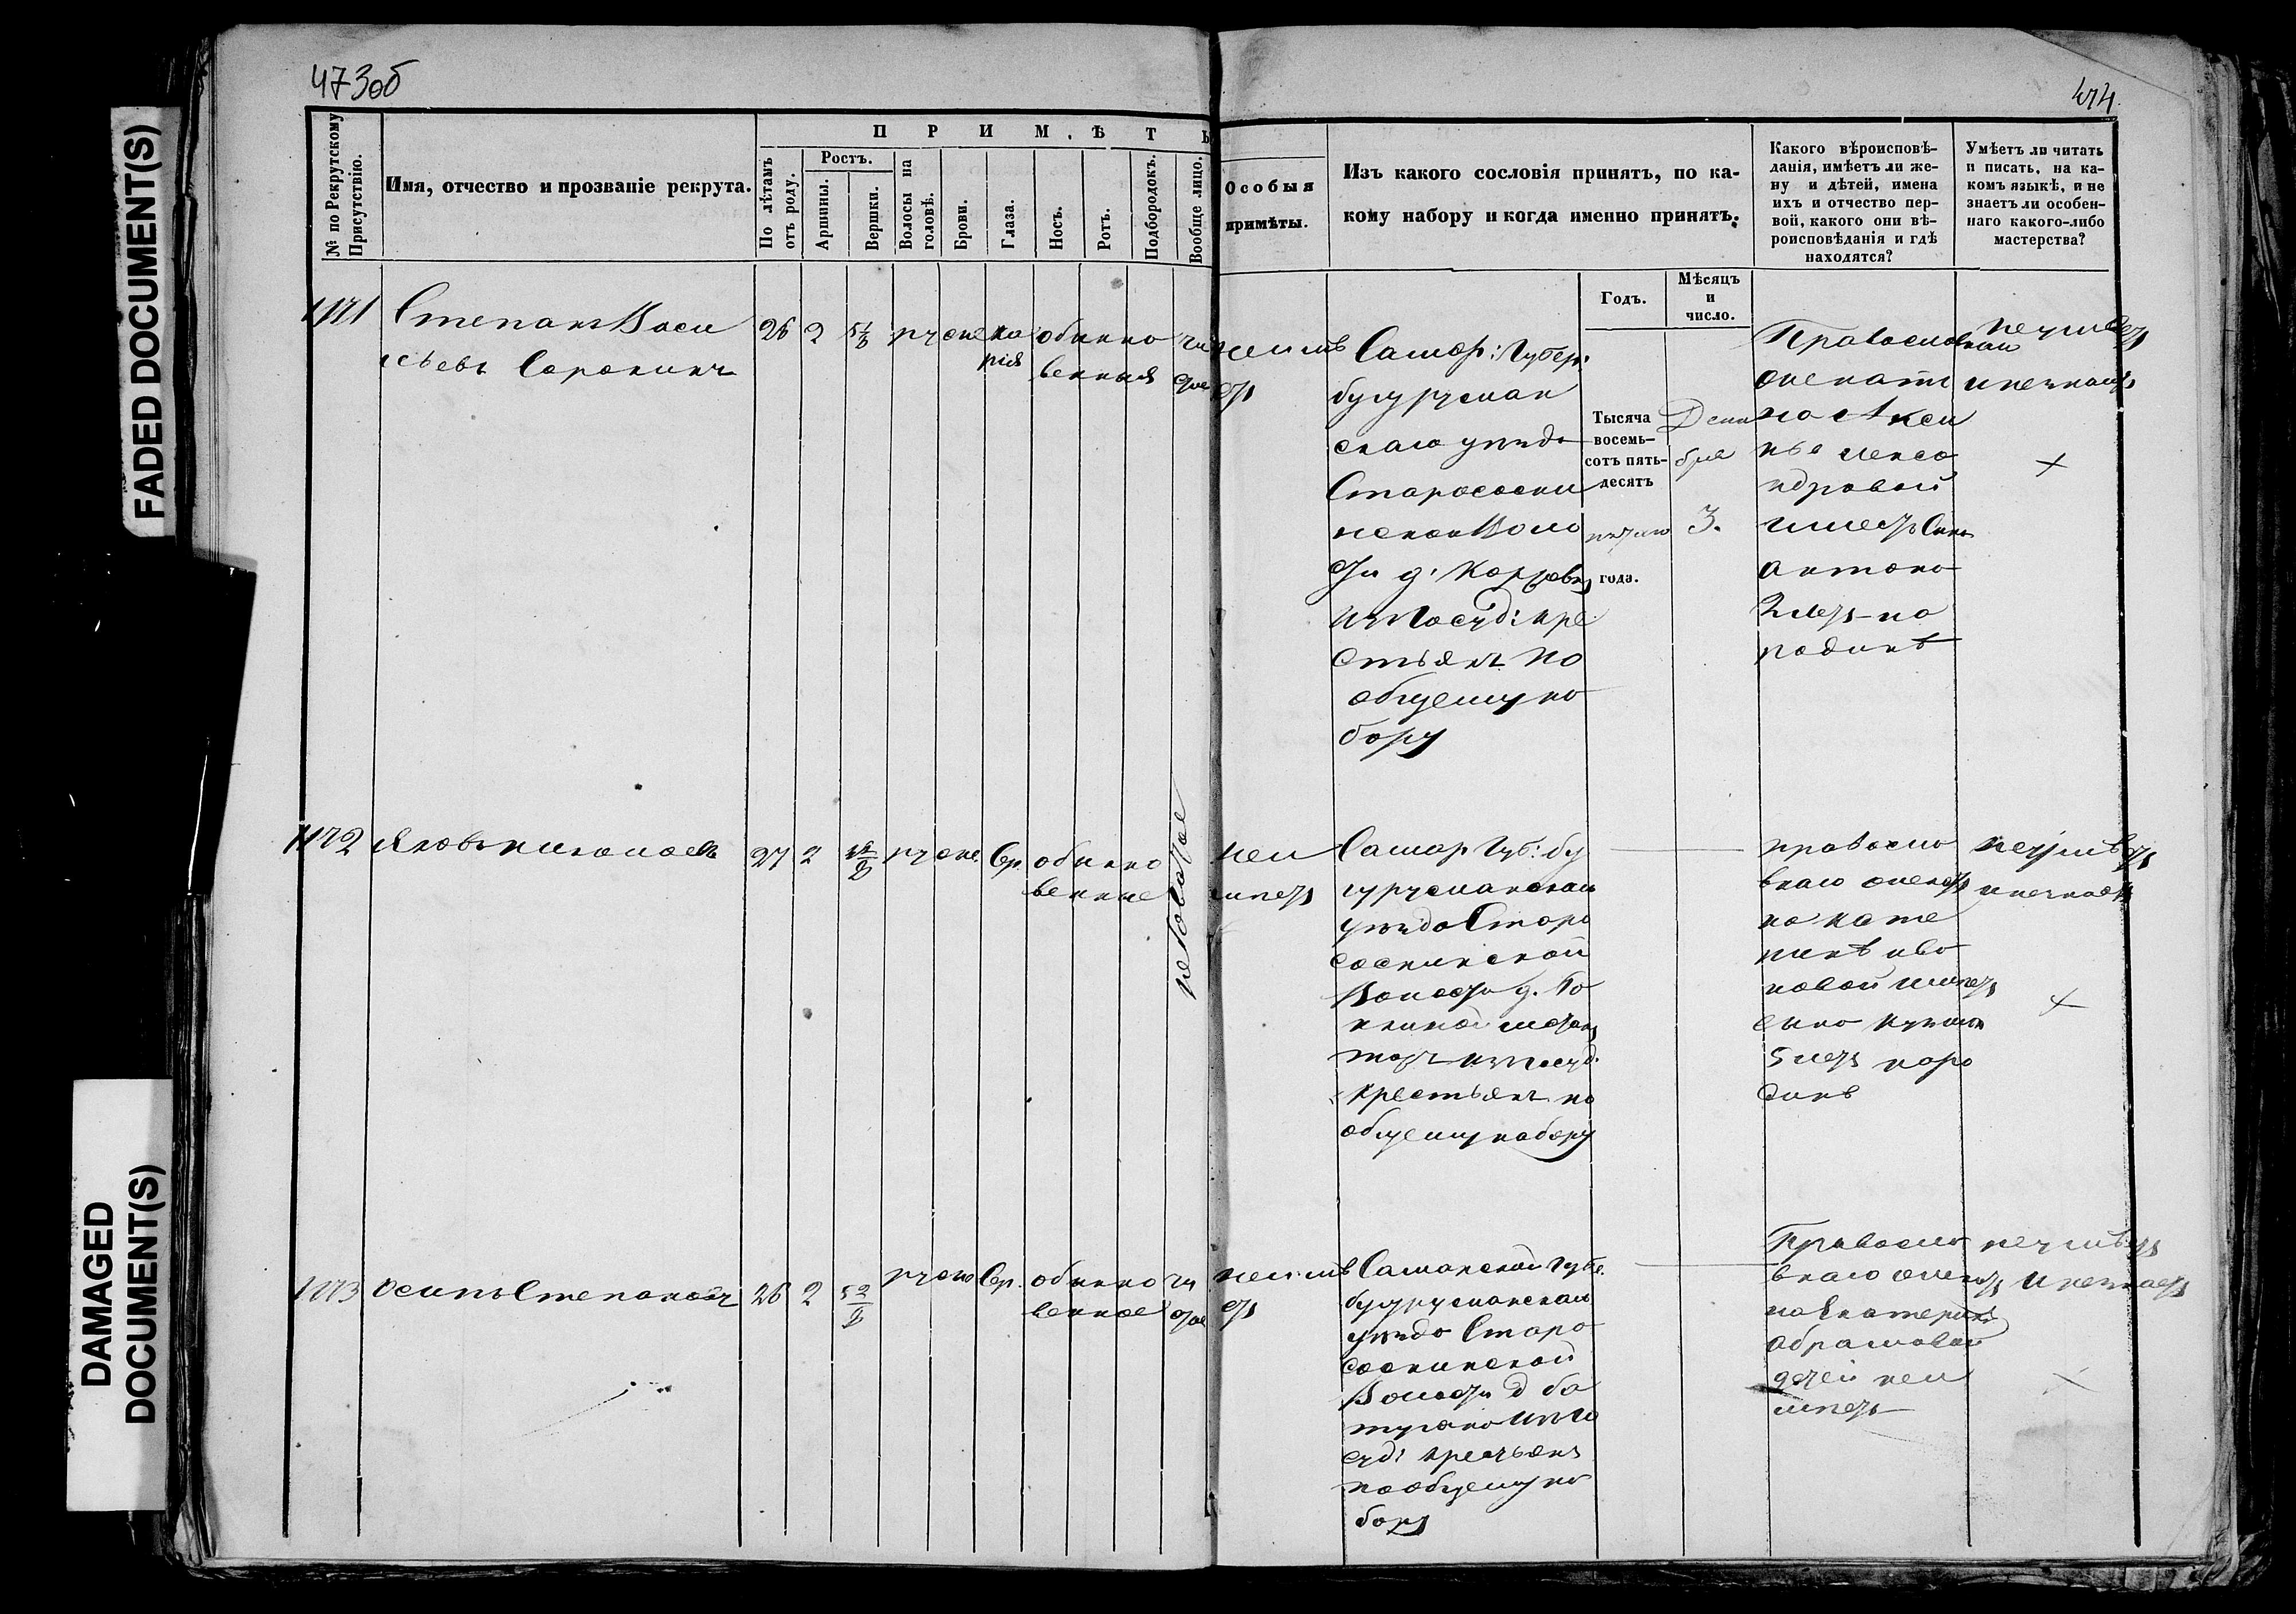 473об
474
FADED DOCUMENT(S)
DAMAGED
DOCUMENT(S)
№ по Рекрутскому
Присутствію.
Имя, отчество и прозваніе рекрута.
ПРИМѢТЫ
По лѣтамъ
отъ роду.
Ростъ.
Аршины.
Вершки.
Волосы на
головѣ.
Брови.
Глаза.
Носъ.
Ротъ.
Подбородокъ.
Вообще лицо.
Особыя
примѣты.
Изъ какого сословія принятъ, по ка-
кому набору и когда именно принятъ.
Годъ.
Мѣсяцъ
и
число.
Какого вѣроисповѣ-
данія, имѣетъ ли же-
ну и дѣтей, имена
ихъ и отчество пер-
вой, какого они вѣ-
роисповѣданія и гдѣ
находятся?
Умѣетъ ли читать
и писать, на ка-
комъ языкѣ, и не
знаетъ ли особен-
наго какого-либо
мастерства?
1171
Степанъ Васи
льевъ Сорокинъ
26 2 русые ка
рія
обыкно
венныя
чи
стое
неимѣ
етъ
Самар: Губер:
бугуруслан
скаго уѣзда
Старососни
ской Воло
сти д.
изъ Госуд: кре
стьянъ по
общему на
бору
Тысяча
восемь-
сотъ пять-
десятъ
пятаго
года.
Дека
бря
3.
Православнаго
женатъ
на Аксинье
Алекса
ндровой
имеетъ сына
антона
2 летъ на
родинѣ
неумеетъ
и незнаетъ
1172
Яковъ николаевъ
27 2 русые Сер. обыкно
венные
рябоватое
неи
мѣетъ
Самар Губ: бу
гурусланскаго
уѣзда Старо
соснинской
Волости д.
изъ Госуд.
крестьянъ по
общему набору
правосла
внаго женатъ
на кате
ринѣ ива
новой имѣетъ
сына
5 летъ на ро
динѣ
неумѣетъ
и незнаетъ
1173
осипъ Степановъ
26 2 русые Сер. обыкно
венное
чи
стое
неимѣ
етъ
Самарской Губе.
бугурусланскаго
уѣзда Старо
соснинской
Волости д ба
изъ Го
суд: крестьянъ
по общему на
бору
Правосла
внаго женатъ
на Екатеринѣ
абрамовой
детей неи
мѣетъ
неумѣетъ
и незнаетъ